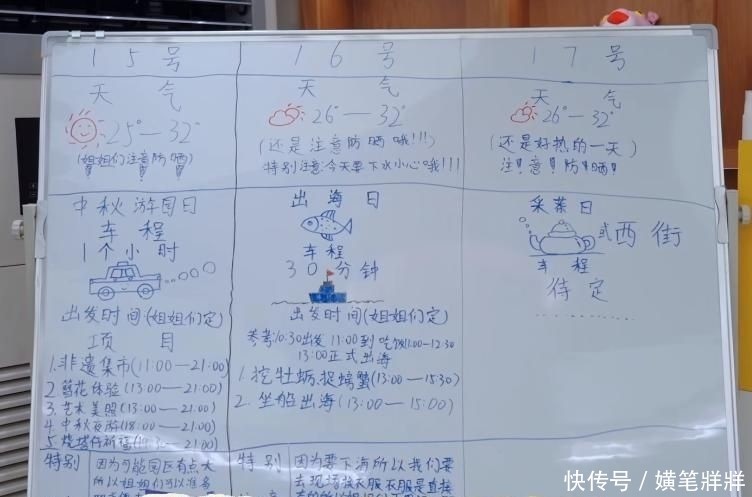 15号
天气
25°—32°
(姐姐们注意防晒)
!!!
中秋游园日
车程
1个小时
出发时间(姐姐们定)
项目
1.非遗集市(11:00—21:00)
2.簪花体验(13:00—21:00)
3.艺术美照(13:00—21:00)
4.中秋夜游(18:00—21:00)
5.烧塔仔祈福
特别
因为可能园区有点大
所以姐姐们可以准备
16号
天气
26°—32°
(还是注意防晒哦!!!)
特别注意:今天要下水小心哦!!!
出海日
车程
30分钟
出发时间(姐姐们定)
参考10:30出发 11:00到 吃饭11:00-12:30
13:00正式出海
1.挖牡蛎.捉螃蟹(13:00—15:30)
2.坐船出海(13:00—15:00)
特别
因为要下海所以我们要
17号
天气
26°—32°
(还是好热的一天)
注!意!防!晒!
采茶日
或西街
车程
待定
快传号/横笔牂牂